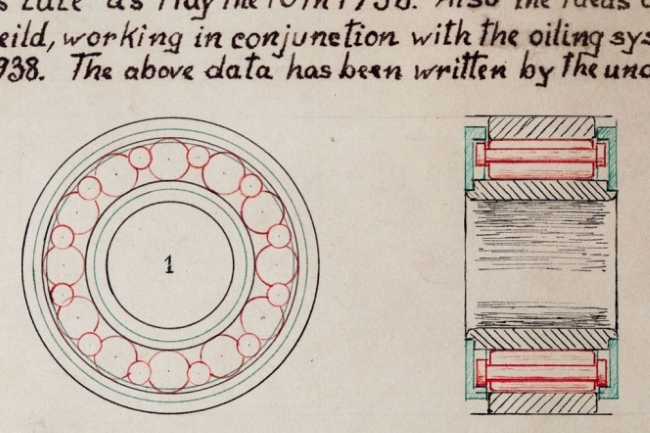 late as May the 10th 1938. Also the ideas
eild, working in conjunction with the oiling sys
938. The above data has been written by the und
1